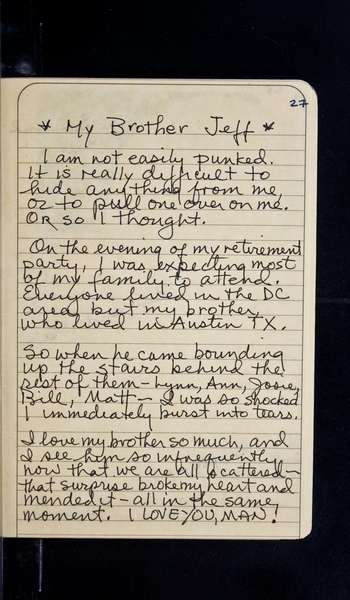 27
* My Brother Jeff *
I am not easily punked.
It is really difficult to
hide anything from me,
or to pull one over on me.
OR SO I thought.
On the evening of my retirement
party, I was expecting most
of my family to attend.
Everyone lived in the DC
area but my brother
who lived in Austin TX.
So when he came bounding
up the stairs behind the
rest of them – Lynn, Ann, Josie,
Bill, Matt – I was so shocked
I immediately burst into tears.
I love my brother so much, and
I see him so infrequently
now that we are all scattered –
that surprise broke my heart and
mended it – all in the same
moment. I LOVE YOU, MAN!